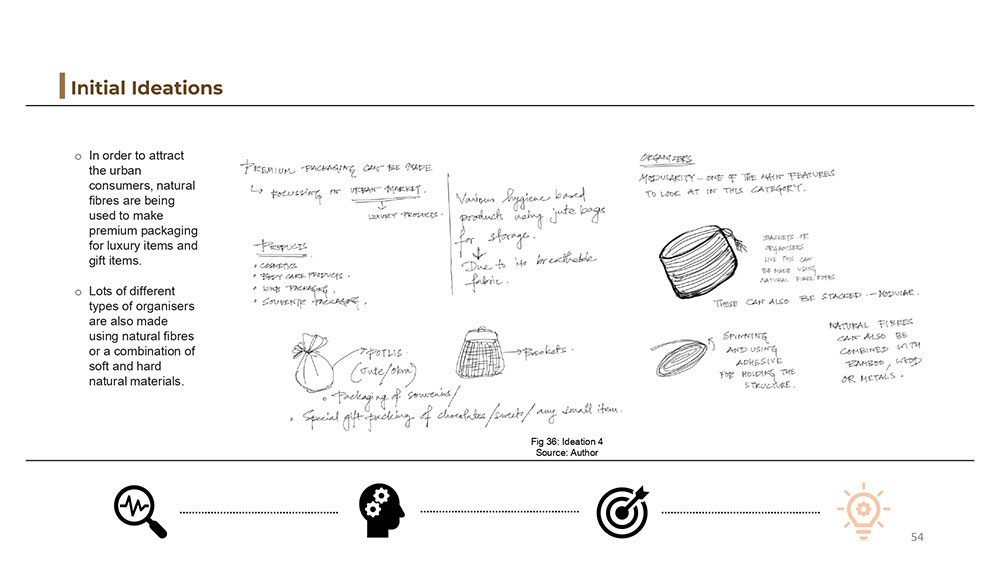 Initial Ideations
o In order to attract
the urban
consumers, natural
fibres are being
used to make
premium packaging
for luxury items and
gift items.
o Lots of different
types of organisers
are also made
using natural fibres
or a combination of
soft and hard
natural materials.
PREMIUM PACKAGING CAN BE MADE
↳ FOCUSSING ON URBAN MARKET.
↓
LUXURY PRODUCTS.
PRODUCTS
• COSMETICS
• BODY CARE PRODUCTS.
• WINE PACKAGING.
• SOUVENIR PACKAGING.
Various hygiene based
products using jute bags
for storage.
↓
Due to its breathable
fabric.
ORGANIZERS
MODULARITY – ONE OF THE MAIN FEATURES
TO LOOK AT IN THIS CATEGORY.
BASKETS OR
ORGANISERS
LIKE THIS CAN
BE MADE USING
NATURAL FIBRE ROPES
THESE CAN ALSO BE STACKED. – MODULAR.
POTLIS
(Jute/
• Packaging of souvenirs/
• Special gift packing of chocolates/sweets/ any small item.
Baskets.
SPINNING
AND USING
ADHESIVE
FOR HOLDING THE
STRUCTURE.
NATURAL FIBRES
CAN ALSO BE
COMBINED WITH
BAMBOO, WOOD
OR METALS.
Fig 36: Ideation 4
Source: Author
54